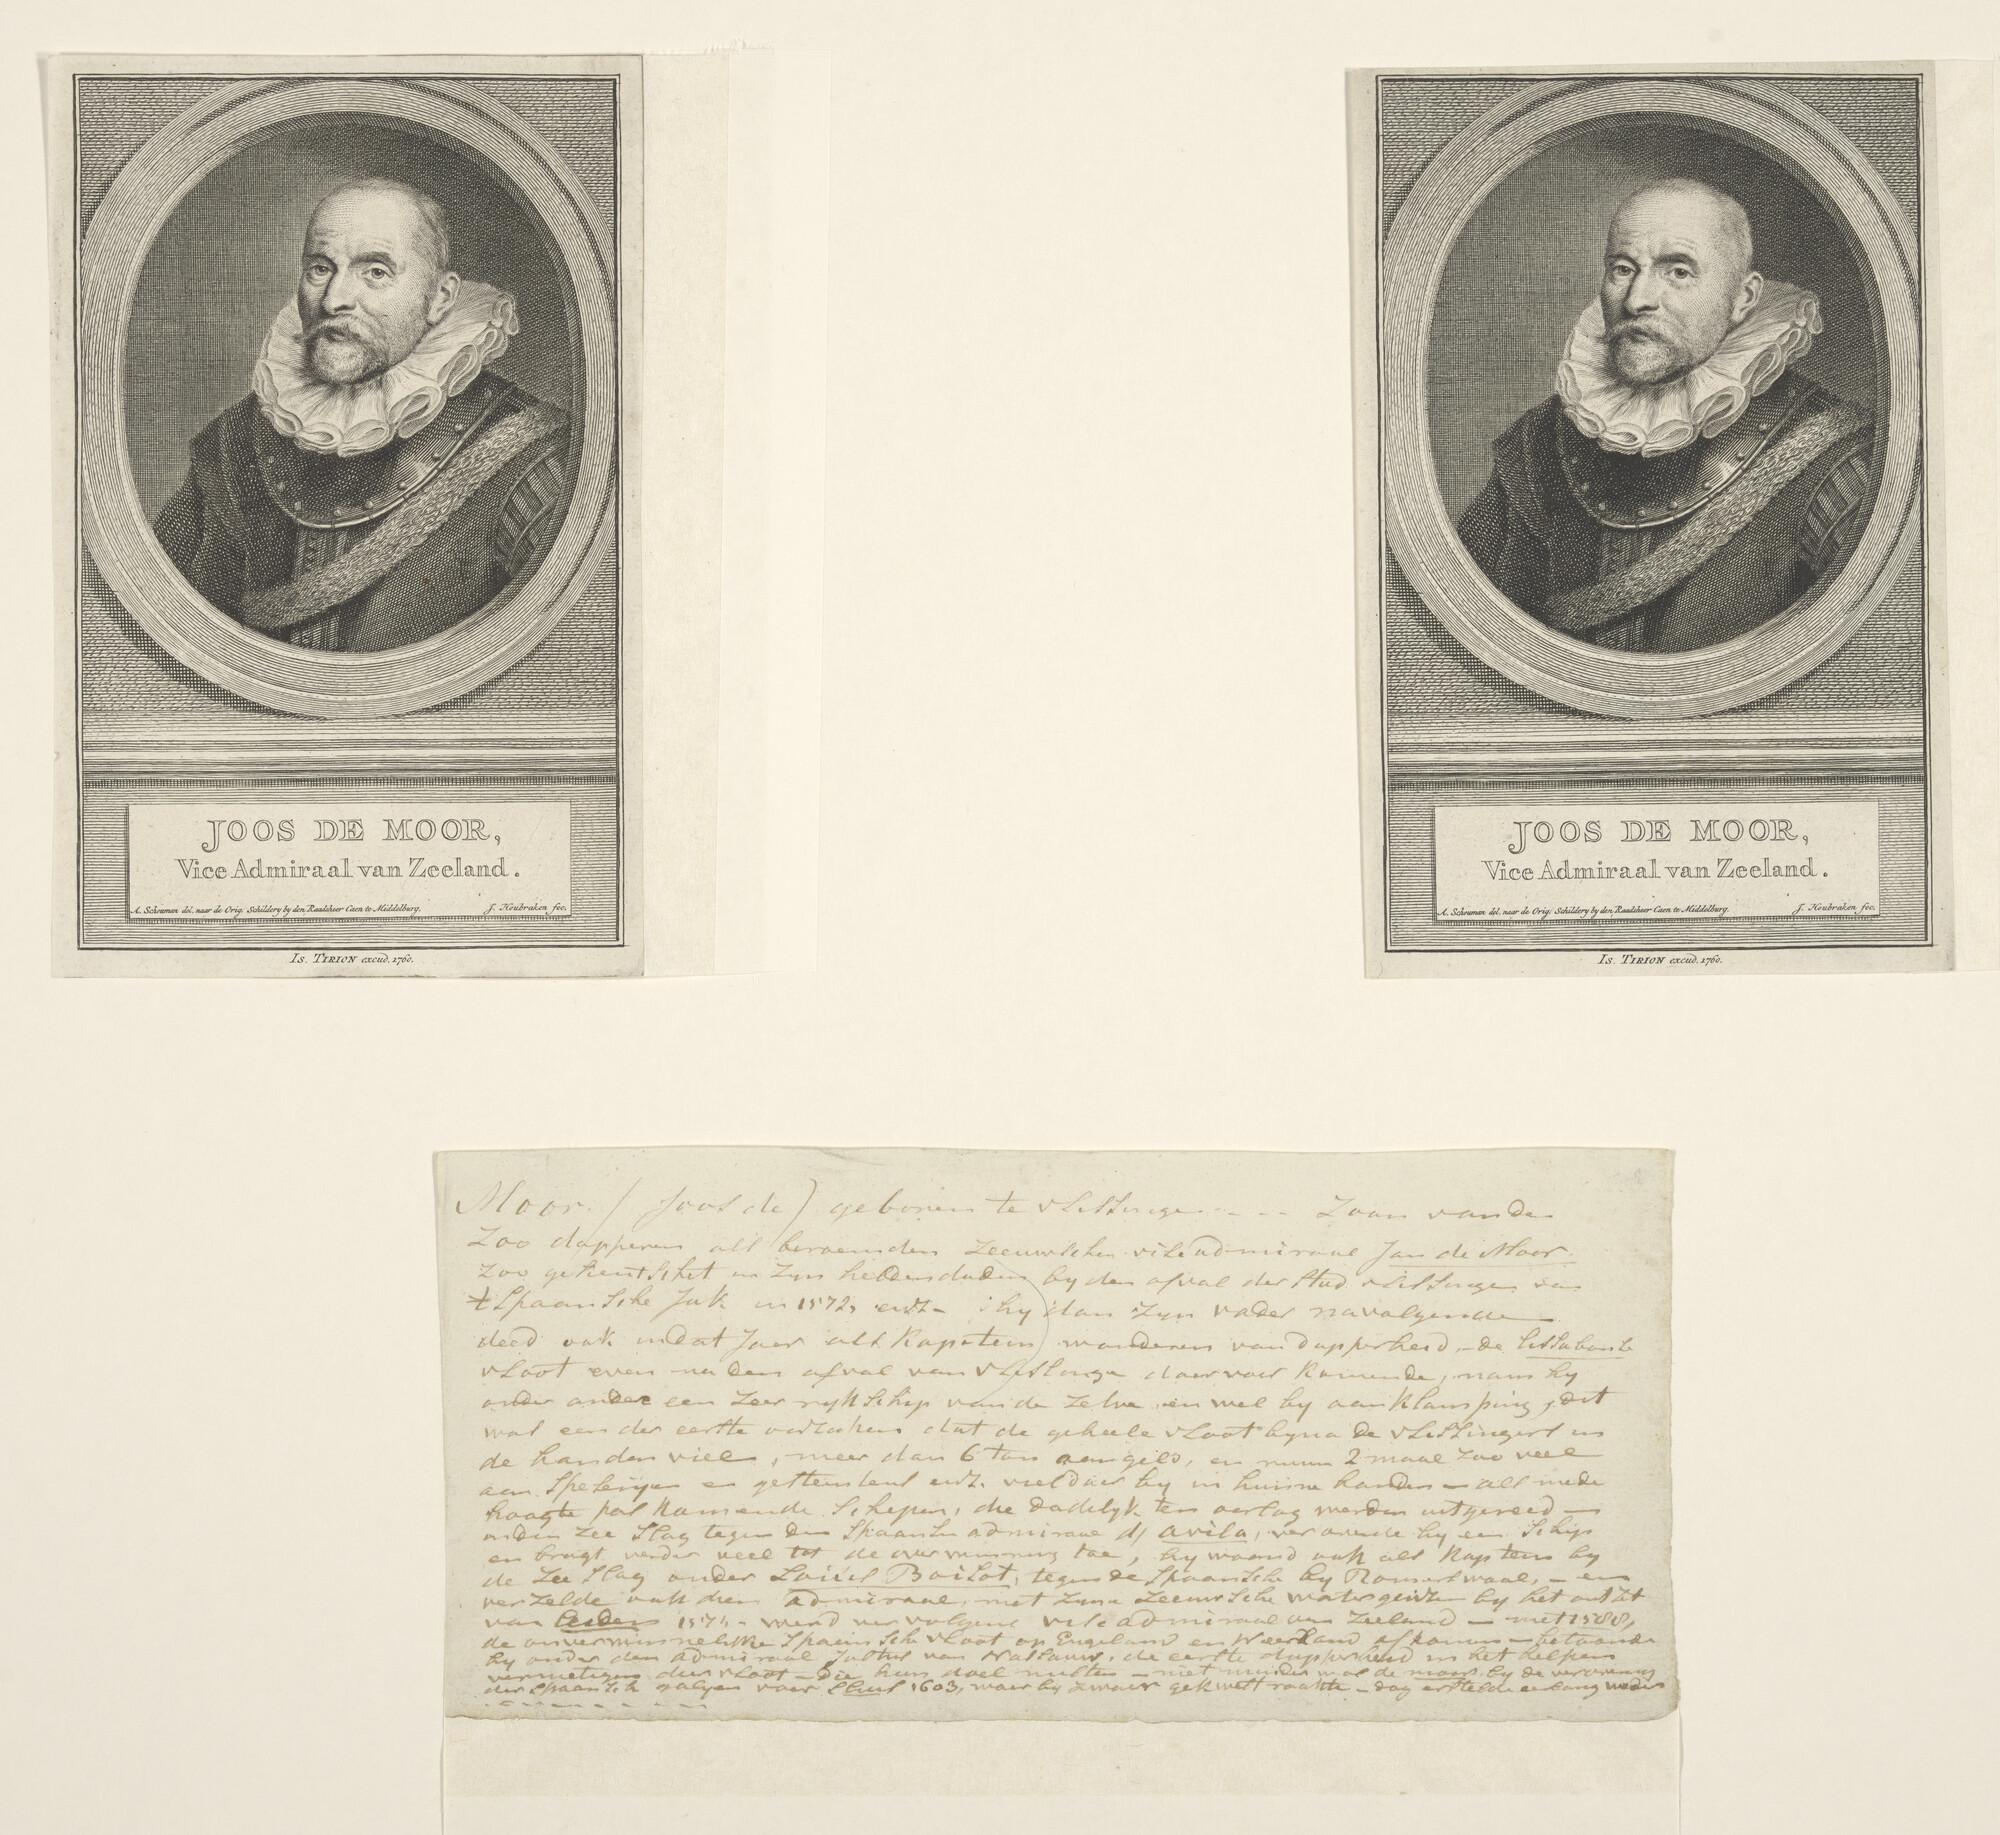 JOOS DE MOOR,
Vice Admiraal van Zeeland.
A. Schouman del. naar de Orig. Schildery by den Raadsheer Caen te Middelburg. J. Houbraken fec.
Is. TIRION excud. 1760.
JOOS DE MOOR,
Vice Admiraal van Zeeland.
A. Schouman del. naar de Orig. Schildery by den Raadsheer Caen te Middelburg. J. Houbraken fec.
Is. TIRION excud. 1760.
Moor. (Joos de) geboren te vlissinge - - - Zoon van de
Zoo dapperen als beroemden Zeeuwschen vice admiraal Jan de Moor.
Zoo geschetst in Zyn heldendaden by den afval der stad vlissingen van
t Spaansche Juk in 1572, enz - hy dan Zyn vader navolgende
deed ook in dat Jaar als Kapitein wonderen van dapperheid, - de Lissabonse
vloot even na den afval van vlissinge daar voor Komende, nam hy
onder andere een zeer ryk schip van de Zelve en wel by aanklamping, dit
was een der eerste oorzaken dat de geheele vloot byna de vlissingers in
de handen viel, meer dan 6 ton aan geld, en ruim 2 maal Zoo veel
aan Speceryen en gesteentens enz. viel daer by in hunne handen - als mede
hoogte pas Komende Schepen, die dadelyk ten oorlog werden uitgereed -
in den Zee Slag tegen den Spaansen admiraal d' avila, veroverde hy een Schip
en bragt verder veel tot de overwinning toe, hy woond ook als Kaptein by
de Zee Slag onder Louis Boisot, tegen de Spaansche by Romerswaal, - en
verzelde ook dien admiraal, met Zyne Zeeuwsche watergeuzen by het ontzet
van Leiden 1574 - werd vervolgens vice admiraal van Zeeland - met 1588,
de onverwinnelikke Spaansche vloot op Engeland en Neerland afkomen - betoonde
hy onder den admiraal Justus van Nassauw, de eerste dapperheid in het helpen
vernietigen dier vloot - die hun doel misten - niet minder was de moor by de verovering
der Spaansch galyen voor Sluis 1603, waer hy zwaer gekwetst raakte - dog